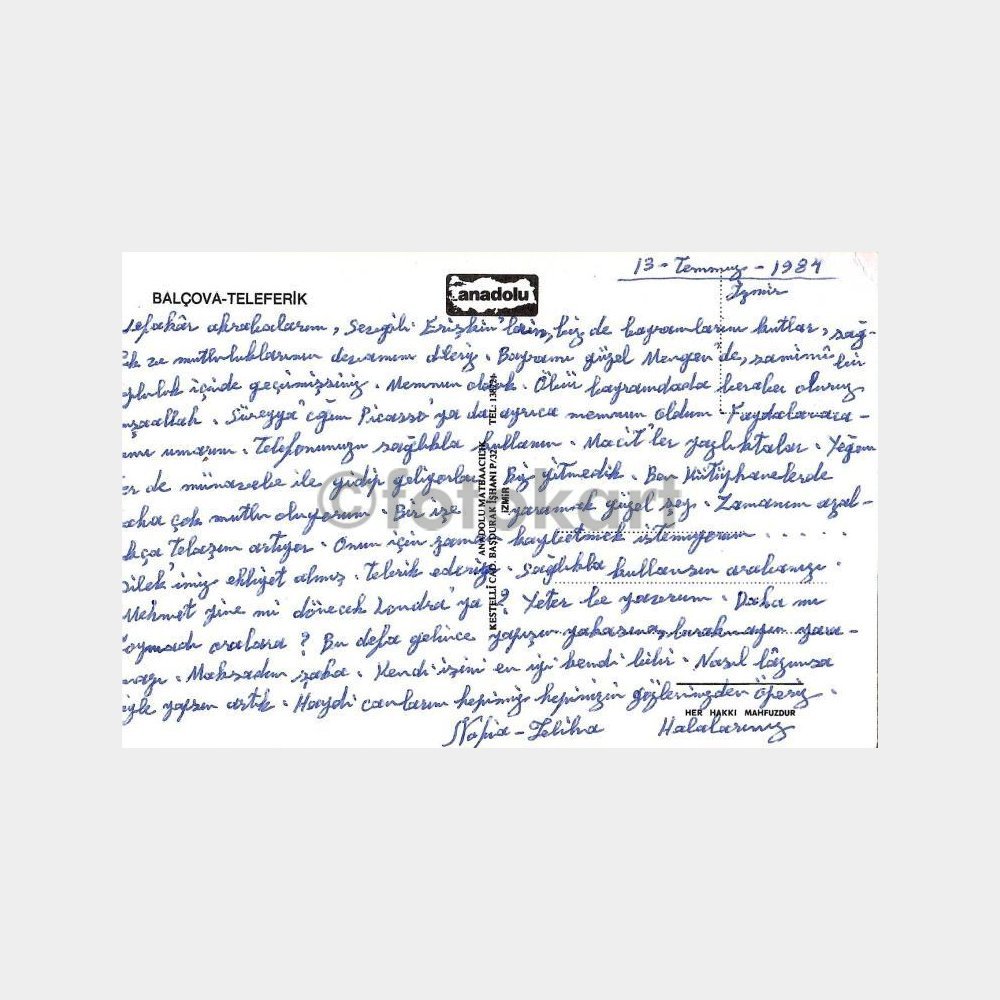 13 - Temmuz - 1984
İzmir
BALÇOVA-TELEFERİK
anadolu
vefakâr akrabalarım, Sevgili Erişkin'lerim, biz de bayramlarını kutlar, sağ-
lık ve mutluluklarının devamını dileriz. Bayramı güzel Mengen'de, samimî bir
içinde geçirmişsiniz. Memnun olduk. Öbür bayramdada beraber oluruz
inşaallah. Süreyya'cığım Picasso'ya da ayrıca memnun oldum. Faydalanaca-
ğımı umarım. Telefonunuzu sağlıkla kullanın. Macit'ler yazlıktalar. Yeğen
ler de münavebe ile gidip geliyorlar. Biz gitmedik. Ben Kütüphanelerde
daha çok mutlu oluyorum. Bir işe yaramak güzel şey. Zamanım azal-
dıkça telaşım artıyor. Onun için zaman kaybetmek istemiyorum . . . . . .
Dilek'imiz ehliyet almış. Tebrik ederiz. Sağlıkla kullansın arabanızı.
Mehmet yine mi dönecek Londra'ya? Yeter be yavrum. Daha mı
doymadı oralara? Bu defa gelince yapışın yakasına, bırakmayın yara-
mazı. Maksadım şaka. Kendi işini en iyi kendi bilir. Nasıl lâzımsa
öyle yapsın artık. Haydi canlarım hepimiz hepinizin gözlerinizden öperiz.
Halalarınız
ANADOLU MATBAACILIK
KESTELLİ CAD. BAŞDURAK İŞHANI P/32 TEL: 138721
İZMİR
HER HAKKI MAHFUZDUR
©fotokart